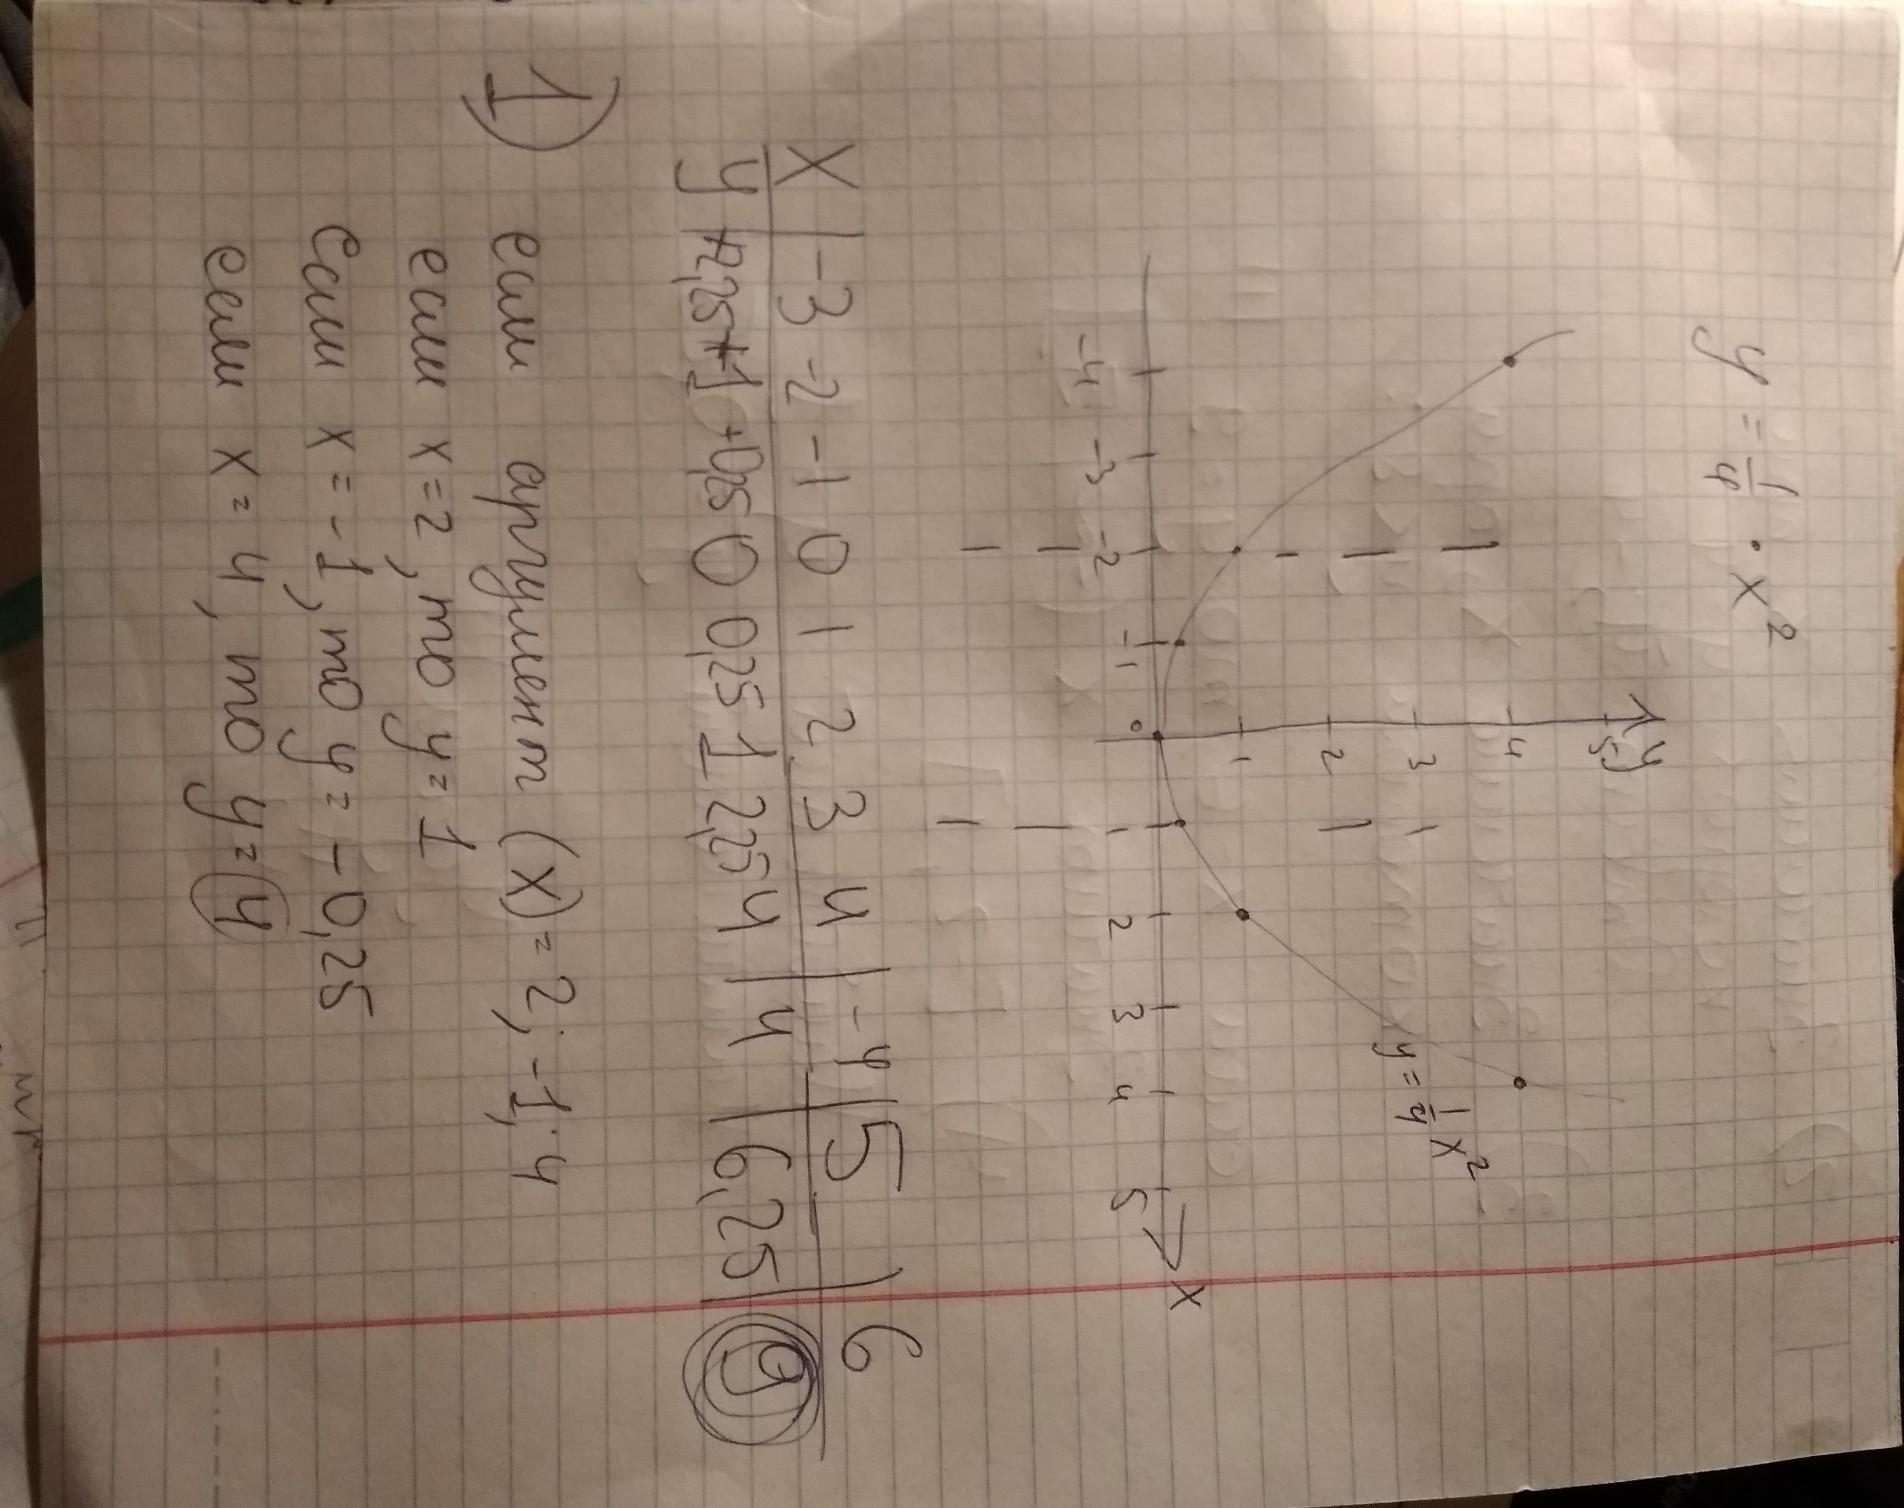 y = 1/4 · x²
y
5
4
3
2
1
-4 -3 -2 -1 0 2 3 4 5 x
y = 1/4 x²
x | -3 -2 -1 0 1 2 3 4 | -4 | 5 | 6
y | +2,25 +1 +0,25 0 0,25 1 2,25 4 | 4 | 6,25 | 9
1) если аргумент (x) = 2; -1; 4
если x = 2, то y = 1
если x = -1, то y = -0,25
если x = 4, то y = 4